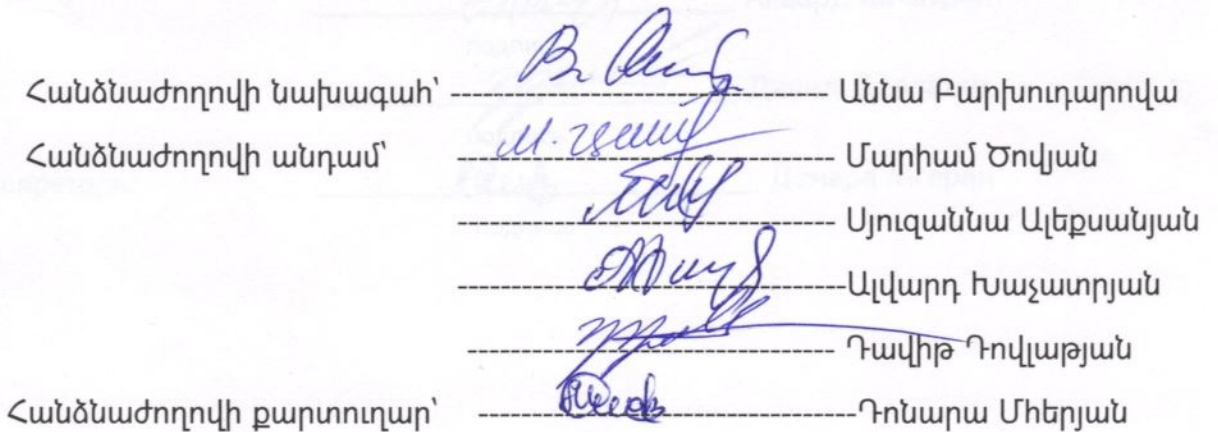 Հանձնաժողովի նախագահ՝ ---------------------------------- Աննա Բարխուդարովա
Հանձնաժողովի անդամ՝ ---------------------------------- Մարիամ Ծովյան
---------------------------------- Սյուզաննա Ալեքսանյան
----------------------------------Ալվարդ Խաչատրյան
---------------------------------- Դավիթ Դովլաթյան
Հանձնաժողովի քարտուղար՝ ----------------------------------Դոնարա Մհերյան